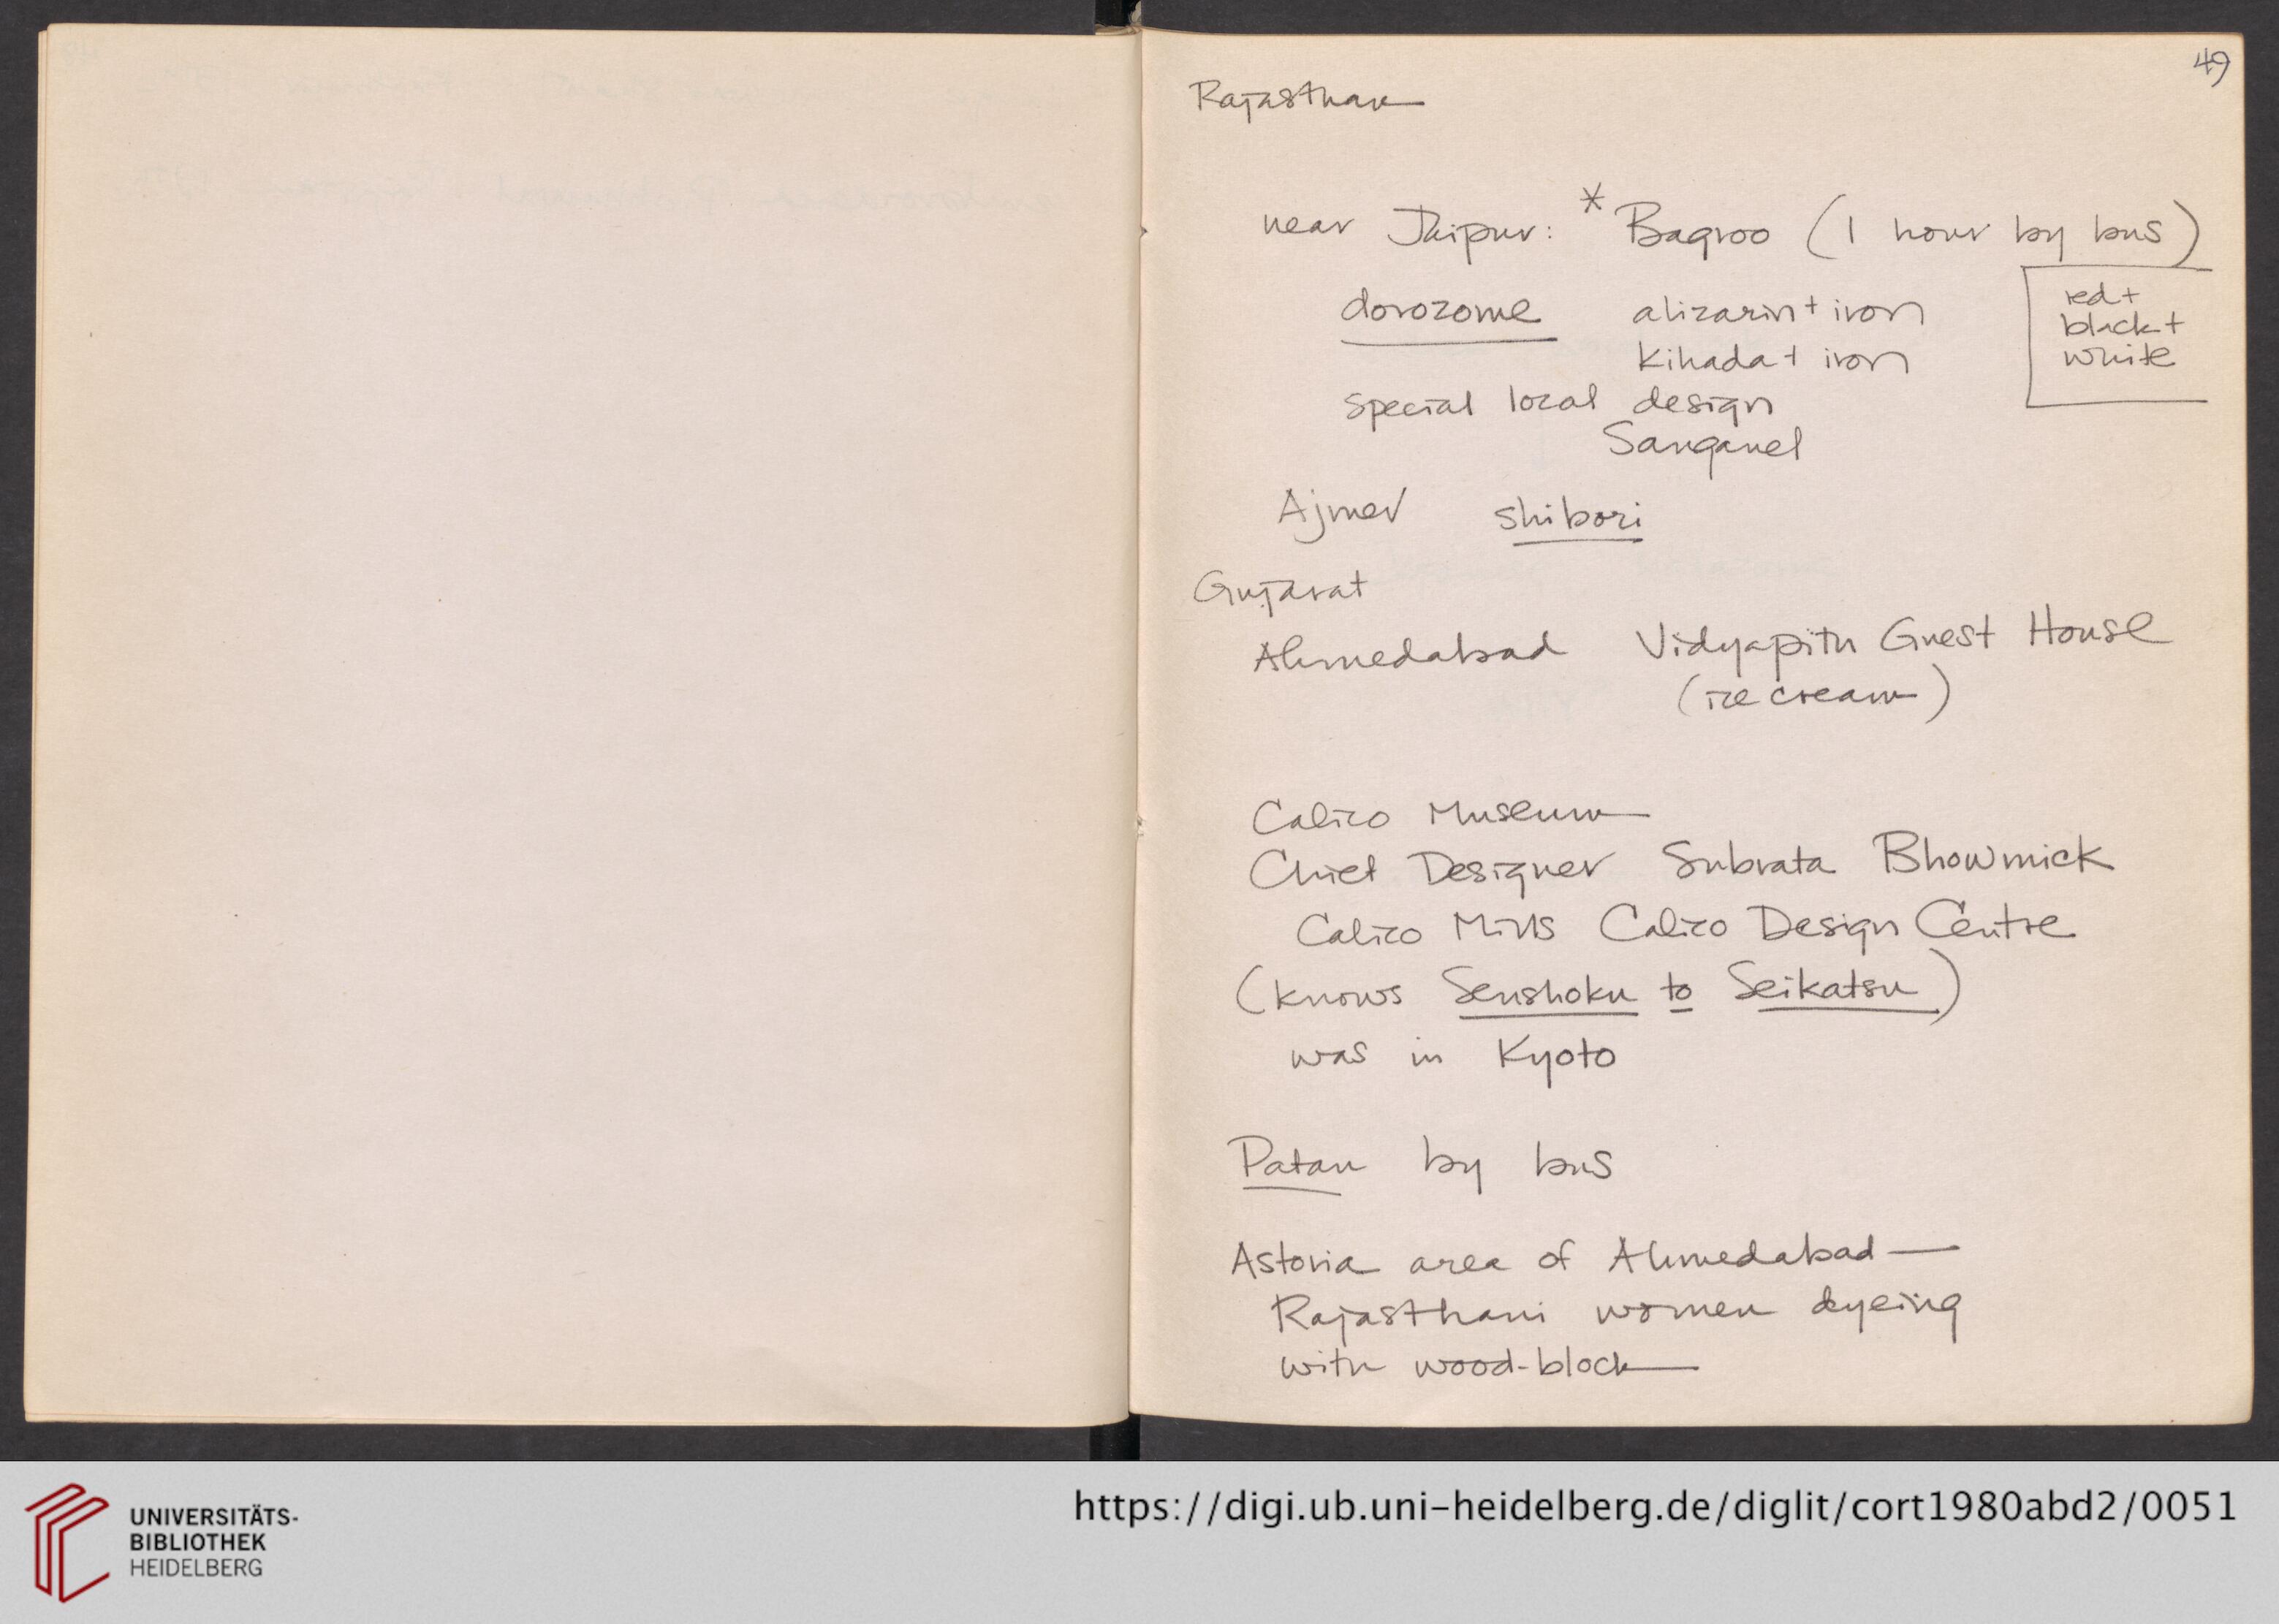 49
Rajasthan
near Jaipur: * Bagroo (1 hour by bus)
dorozome alizarin + iron
red +
black +
white
kihada + iron
special local design
Sanganel
Ajmer shibori
Gujarat
Ahmedabad Vidyapith Guest House
(ice cream)
Calico Museum
Chief Designer Subrata Bhowmick
Calico Mills Calico Design Centre
(knows Senshoku to Seikatsu)
was in Kyoto
Patan by bus
Astoria area of Ahmedabad —
Rajasthani women dyeing
with wood-block
UNIVERSITÄTS-
BIBLIOTHEK
HEIDELBERG
https://digi.ub.uni-heidelberg.de/diglit/cort1980abd2/0051